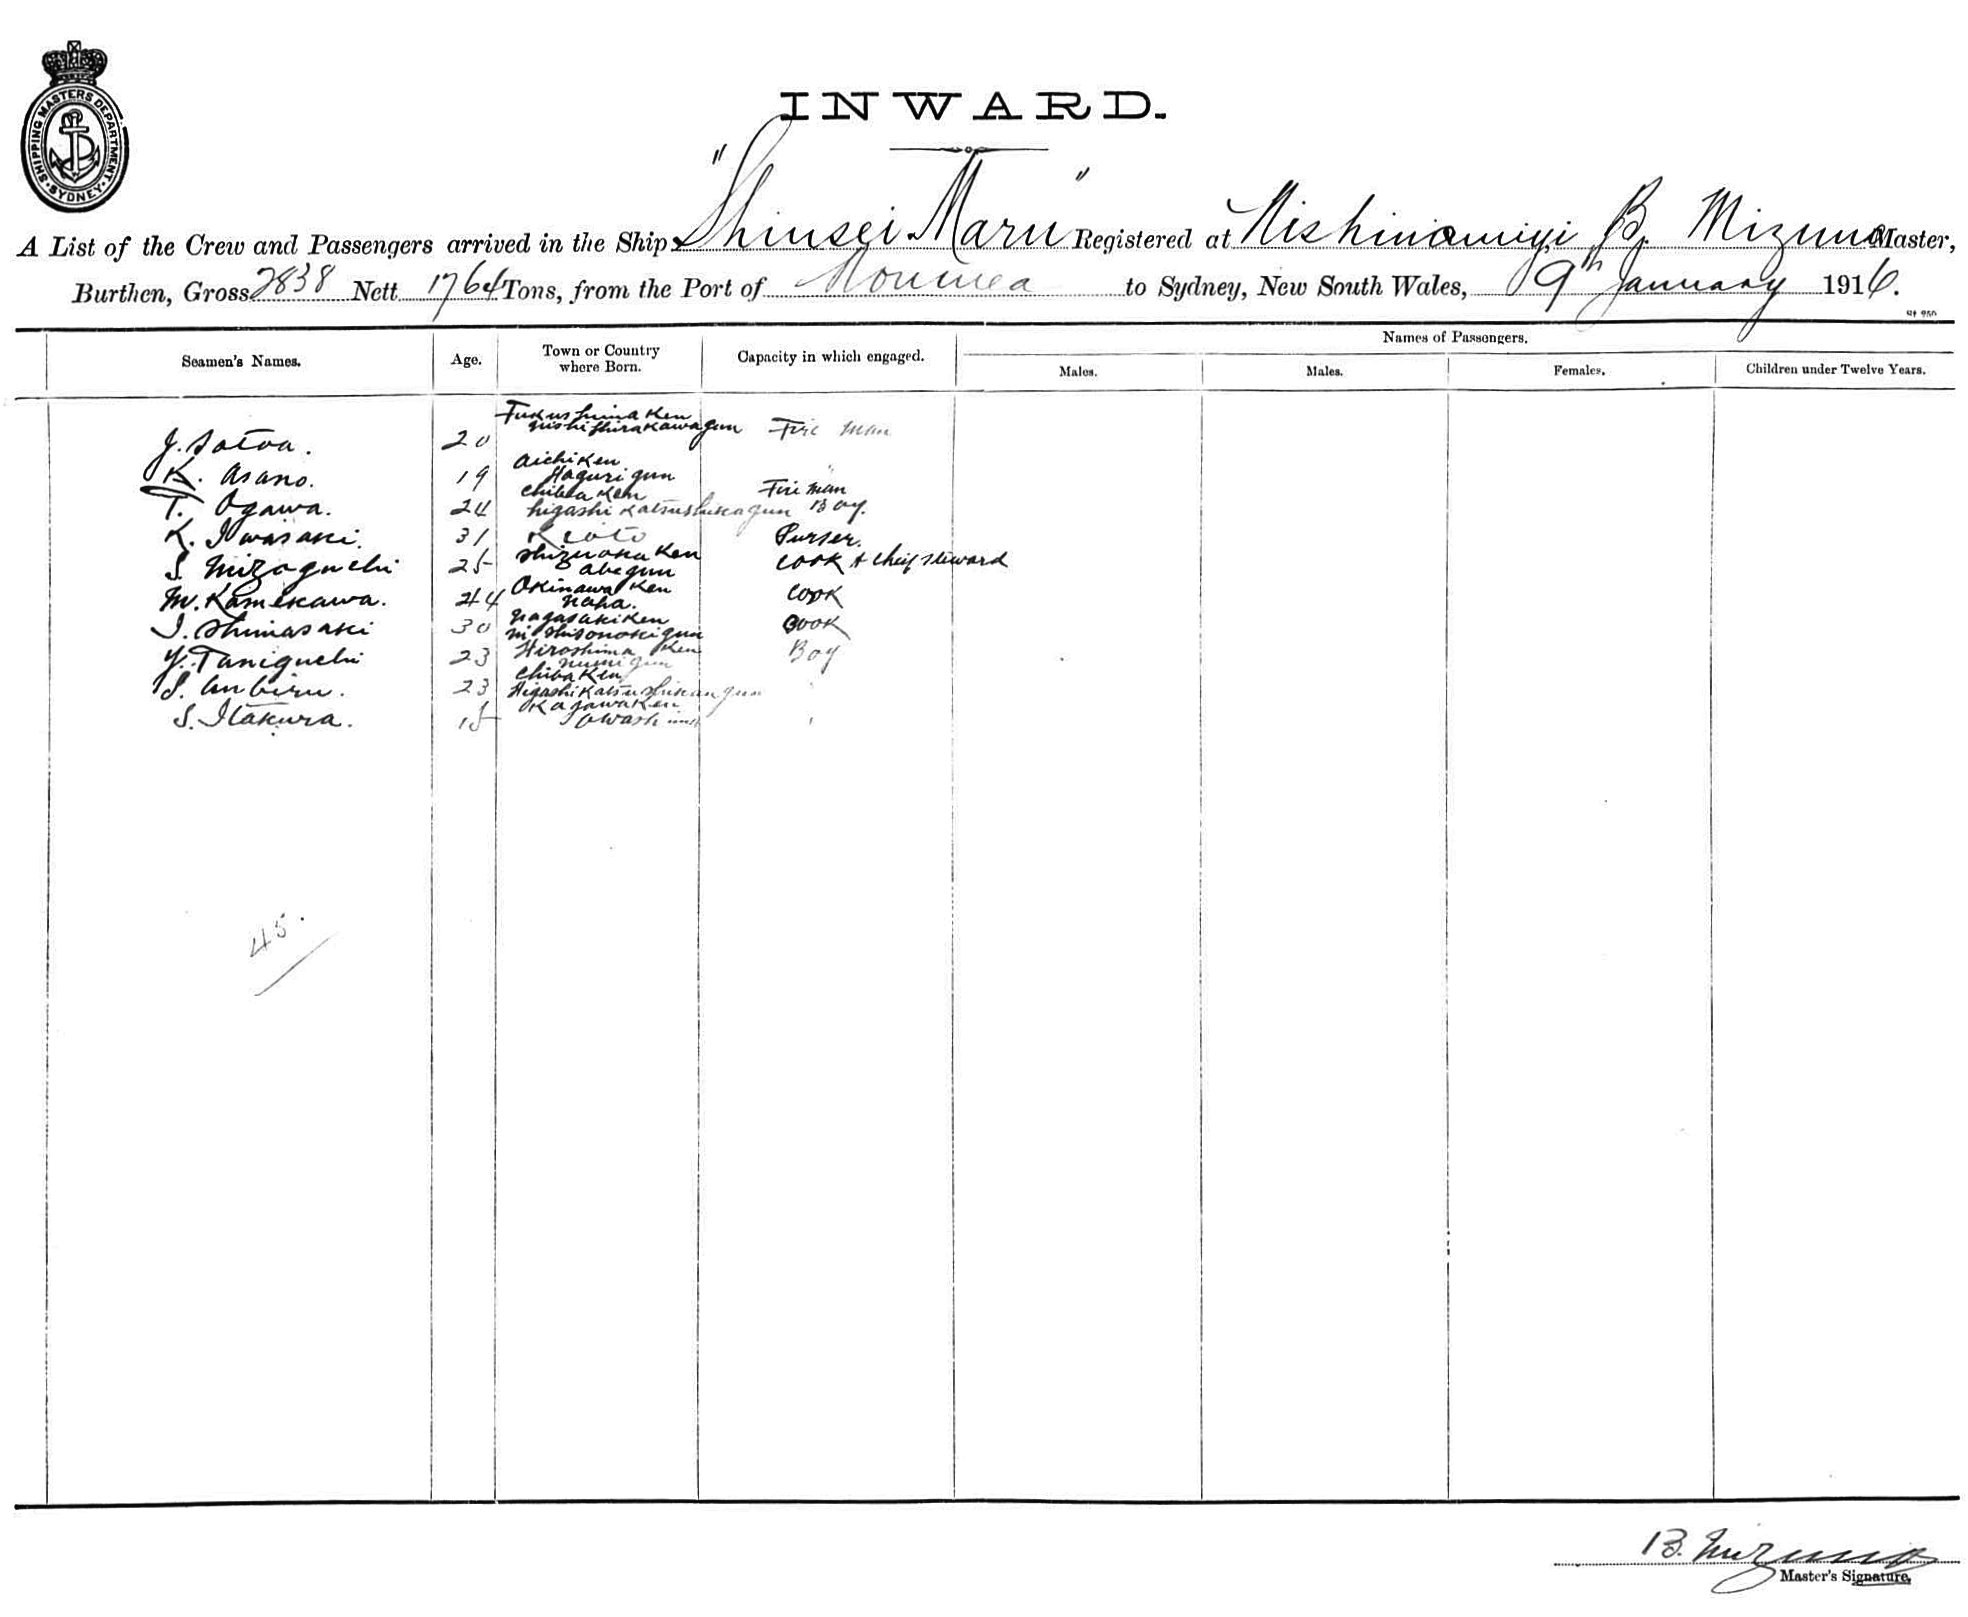 SHIPPING MASTERS DEPARTMENT
SYDNEY
INWARD.
A List of the Crew and Passengers arrived in the Ship "Shinsei Maru" Registered at Nishinomiya, B. Mizuno Master,
Burthen, Gross 2838 Nett 1764 Tons, from the Port of Noumea to Sydney, New South Wales, 9th January 1916.
Seamen's Names. Age. Town or Country where Born. Capacity in which engaged. Names of Passengers.
Males. Males. Females. Children under Twelve Years.
J. Satoa. 20 Fukushima Ken nishishirakawa gun Fire man
K. Asano. 19 Aichi Ken Haguri gun Fire man
T. Ogawa. 24 Chiba Ken higashi Katsushika gun Boy.
K. Iwasaki. 31 Kioto Purser.
S. Mizoguchi 25 Shizuoka Ken abe gun Cook & Cheif Steward
M. Kamekawa. 44 Okinawa Ken naha. Cook
I. Shimasaki 30 Nagasaki Ken nishisonoki gun Cook
Y. Taniguchi 23 Hiroshima Ken numi gun Boy
S. Anbiru. 23 Chiba Ken Higashi Katsushika gun "
S. Itakura. 15 Kagawa Ken Awashima "
45.
B. Mizuno
Master's Signature.